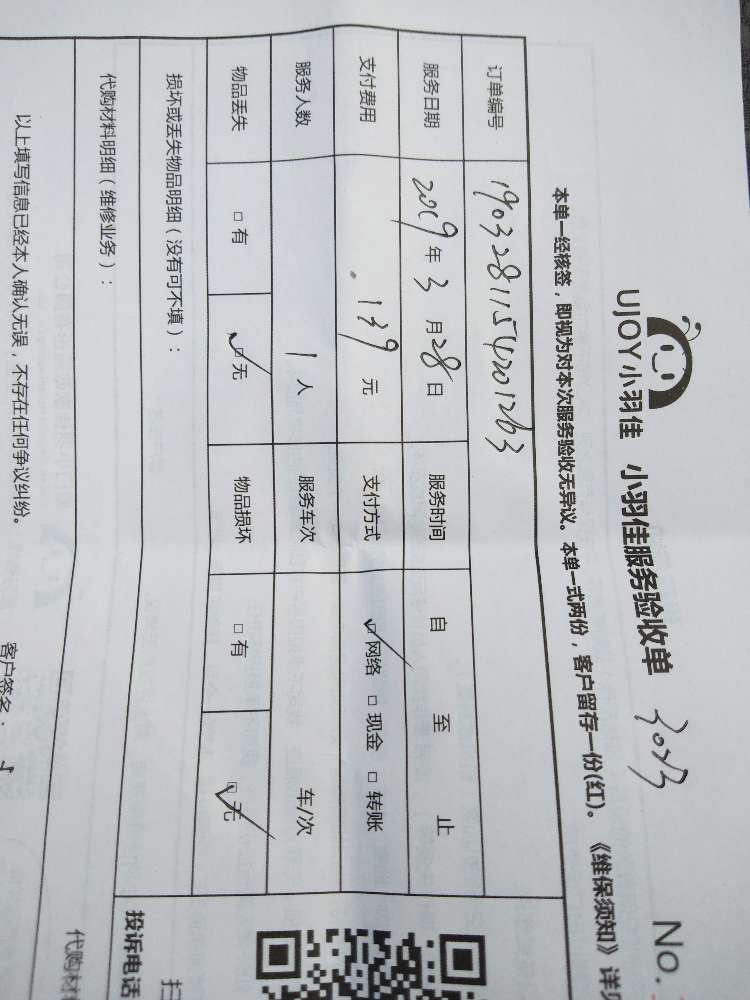 UJOY小羽佳 小羽佳服务验收单 3023 No.
本单一经核签，即视为对本次服务验收无异议。本单一式两份，客户留存一份(红)。《维保须知》详
订单编号 1903281154201263
服务日期 2019年3月28日 服务时间 自 至 止
支付费用 139元 支付方式 □网络 □现金 □转账
服务人数 1人 服务车次 车/次
物品丢失 □有 □无 物品损坏 □有 □无
损坏或丢失物品明细（没有可不填）：
代购材料明细（维修业务）： 投诉电话
以上填写信息已经本人确认无误，不存在任何争议纠纷。 代购材料
客户签名：